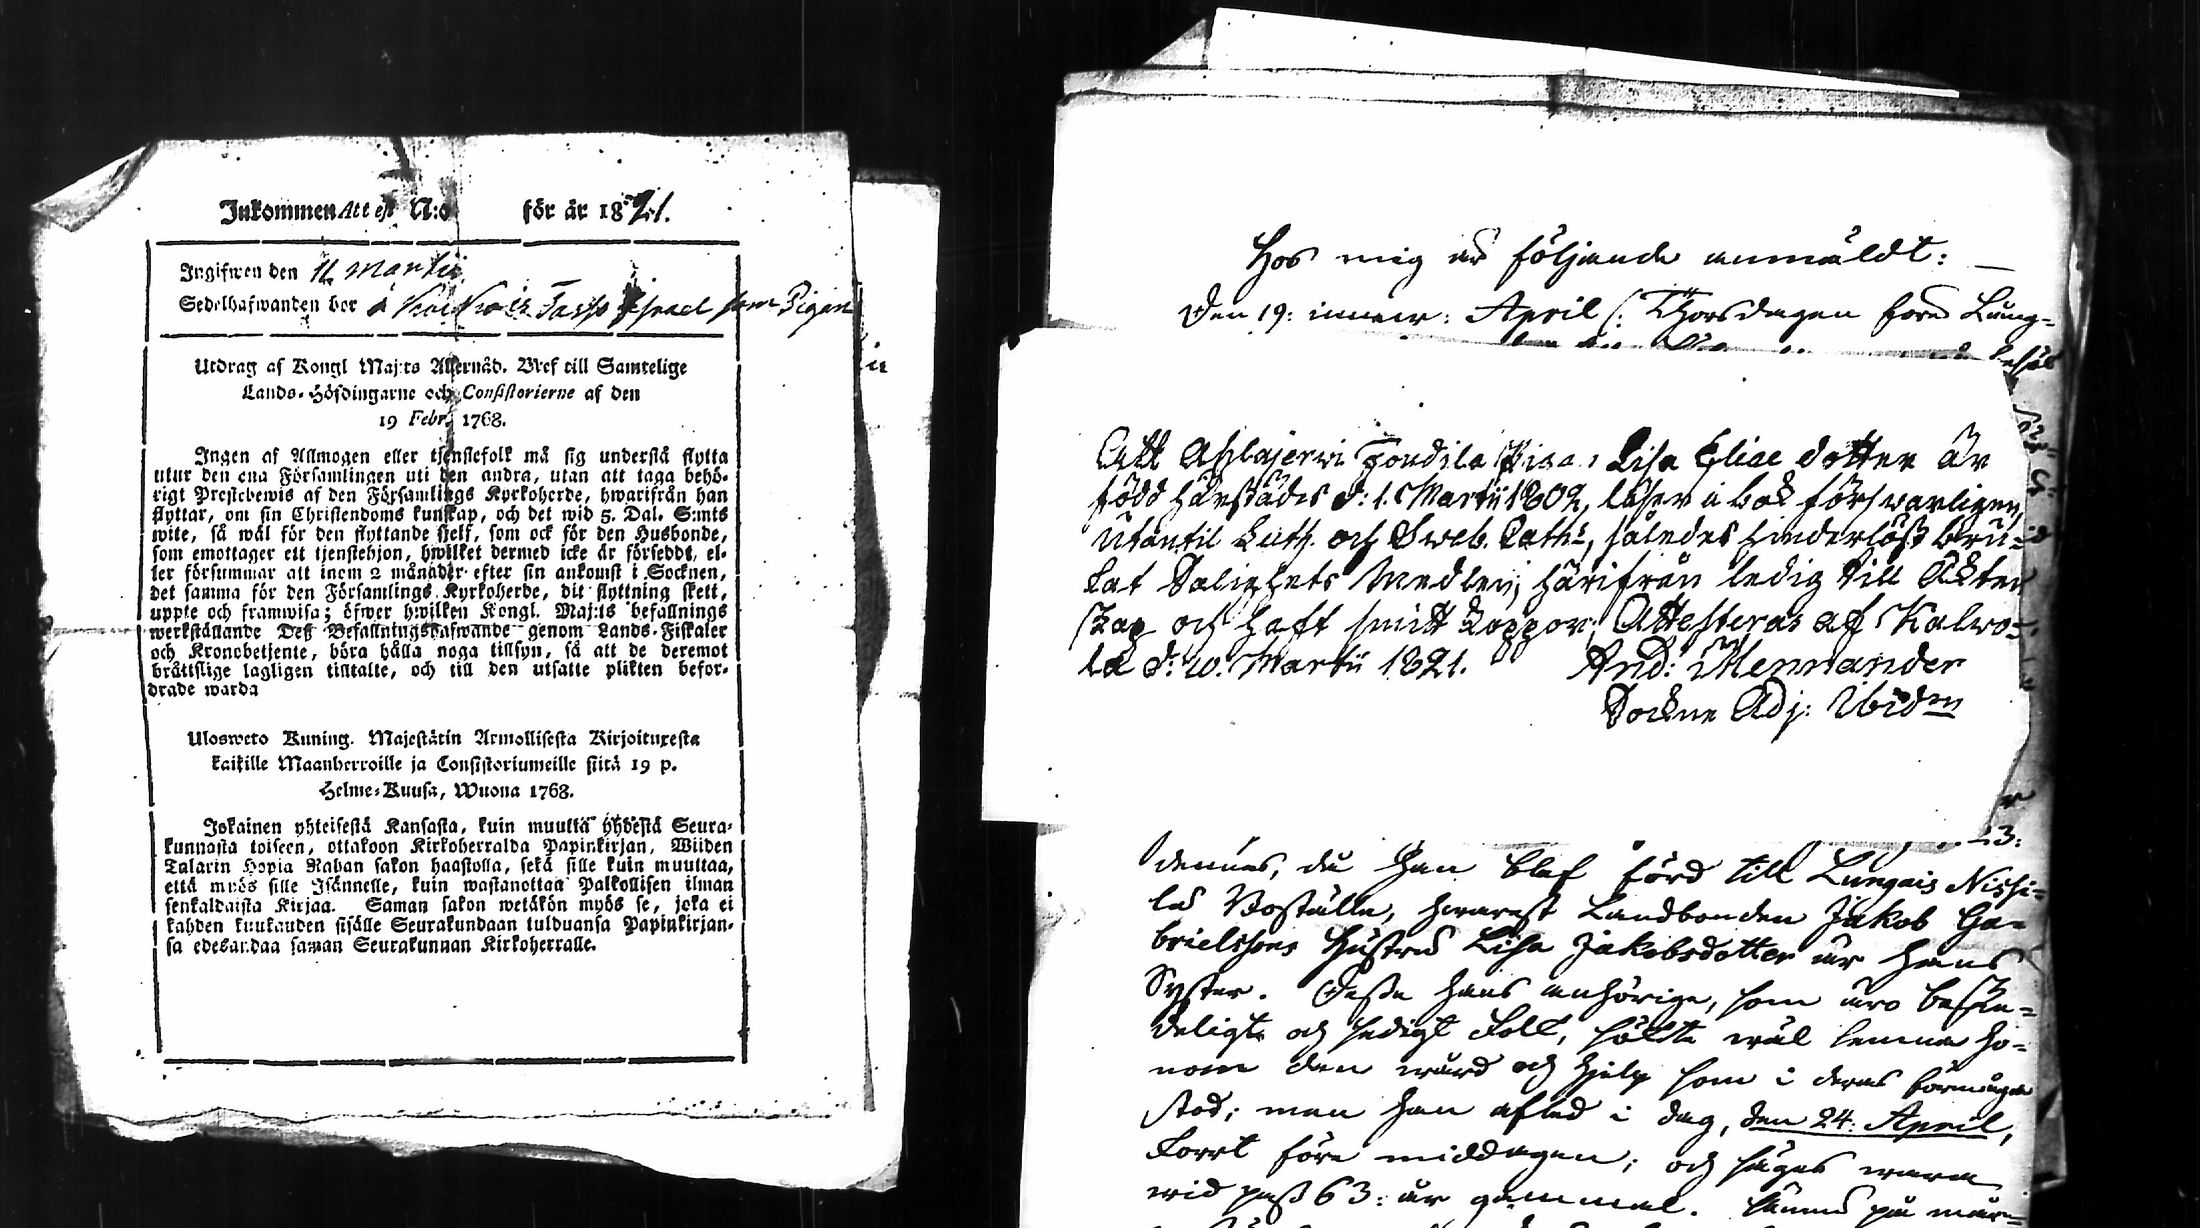 Inkommen Attest N:o för år 1821.
Ingifwen den 11 Martii
Sedelhafwanden bor å Tasso Israel som Pigan
Utdrag af Kongl Maj:ts Allernåd. Bref till Samtelige
Lands-Höfdingarne och Consistorierne af den
19 Febr. 1768.
Ingen af Allmogen eller tjenstefolk må sig understå flytta
utur den ena Församlingen uti den andra, utan att taga behö-
rigt Prestebewis af den Församlings Kyrkoherde, hwarifrån han
flyttar, om sin Christendoms kunskap, och det wid 5. Dal. S:mts
wite, så wäl för den flyttande sjelf, som ock för den Husbonde,
som emottager ett tjenstehjon, hwilket dermed icke är förseddt, el-
ler försummar att inom 2 månader efter sin ankomst i Socknen,
det samma för den Församlings Kyrkoherde, dit flyttning skett,
uppte och framwisa; öfwer hwilken Kongl. Maj:ts befallnings
werkställande Deß Befallningshafwande genom Lands-Fiskaler
och Kronobetjente, böra hålla noga tillsyn, så att de deremot
bråttslige lagligen tilltalte, och till den utsatte plikten befor-
drade warda
Ulosweto Kuning. Majestätin Armollisesta Kirjoituxesta
kaikille Maanherroille ja Consistoriumeille siitä 19 p.
Helme-Kuusa, Wuona 1768.
Jokainen yhteisestä Kansasta, kuin muuttä yhdestä Seura-
kunnasta toiseen, ottakoon Kirkoherralda Papinkirjan, Wiiden
Talarin Hopia Rahan sakon haastolla, sekä sille kuin muuttaa,
että myös sille Isännelle, kuin wastanottaa Palkollisen ilman
senkaldaista Kirjaa. Saman sakon wetäkön myös se, joka ei
kahden kuukauden sisälle Seurakundaan tulduansa Papinkirjan-
sa edesandaa saman Seurakunnan Kirkoherralle.
Hos mig är följande anmäldt: —
Den 19: innew: April (: Thorsdagen före Lung-
Att Ahlajerwi Tondila Pigan Lisa Eliae dotter är
född härstädes d: 1. Martii 1802, läser i bok förswarligen,
utantil Luth. och Sweb. Cath:, således hinderlöst bru-
kat Salighets Medlen; härifrån ledig till Äkten
skap och haft smitt koppor; Attesteras af Kalwo-
la d: 10. Martii 1821. And: Mennander
Sockne Adj: Ibidm
23:
dennes, då han blef förd till Lungais Nissi-
lä Boställe, hwarest Landbonden Jakob Ga-
brielssons Hustru Lisa Jakobsdotter är hans
Syster. Desse hans anhörige, som äro beske-
deligt och sedigt Folk, sökte wäl lemna ho-
nom den wård och hjelp som i deras förmåga
stod; men han afled i dag, den 24: April,
kort före middagen; och säges wara
wid paß 63: år gammal.